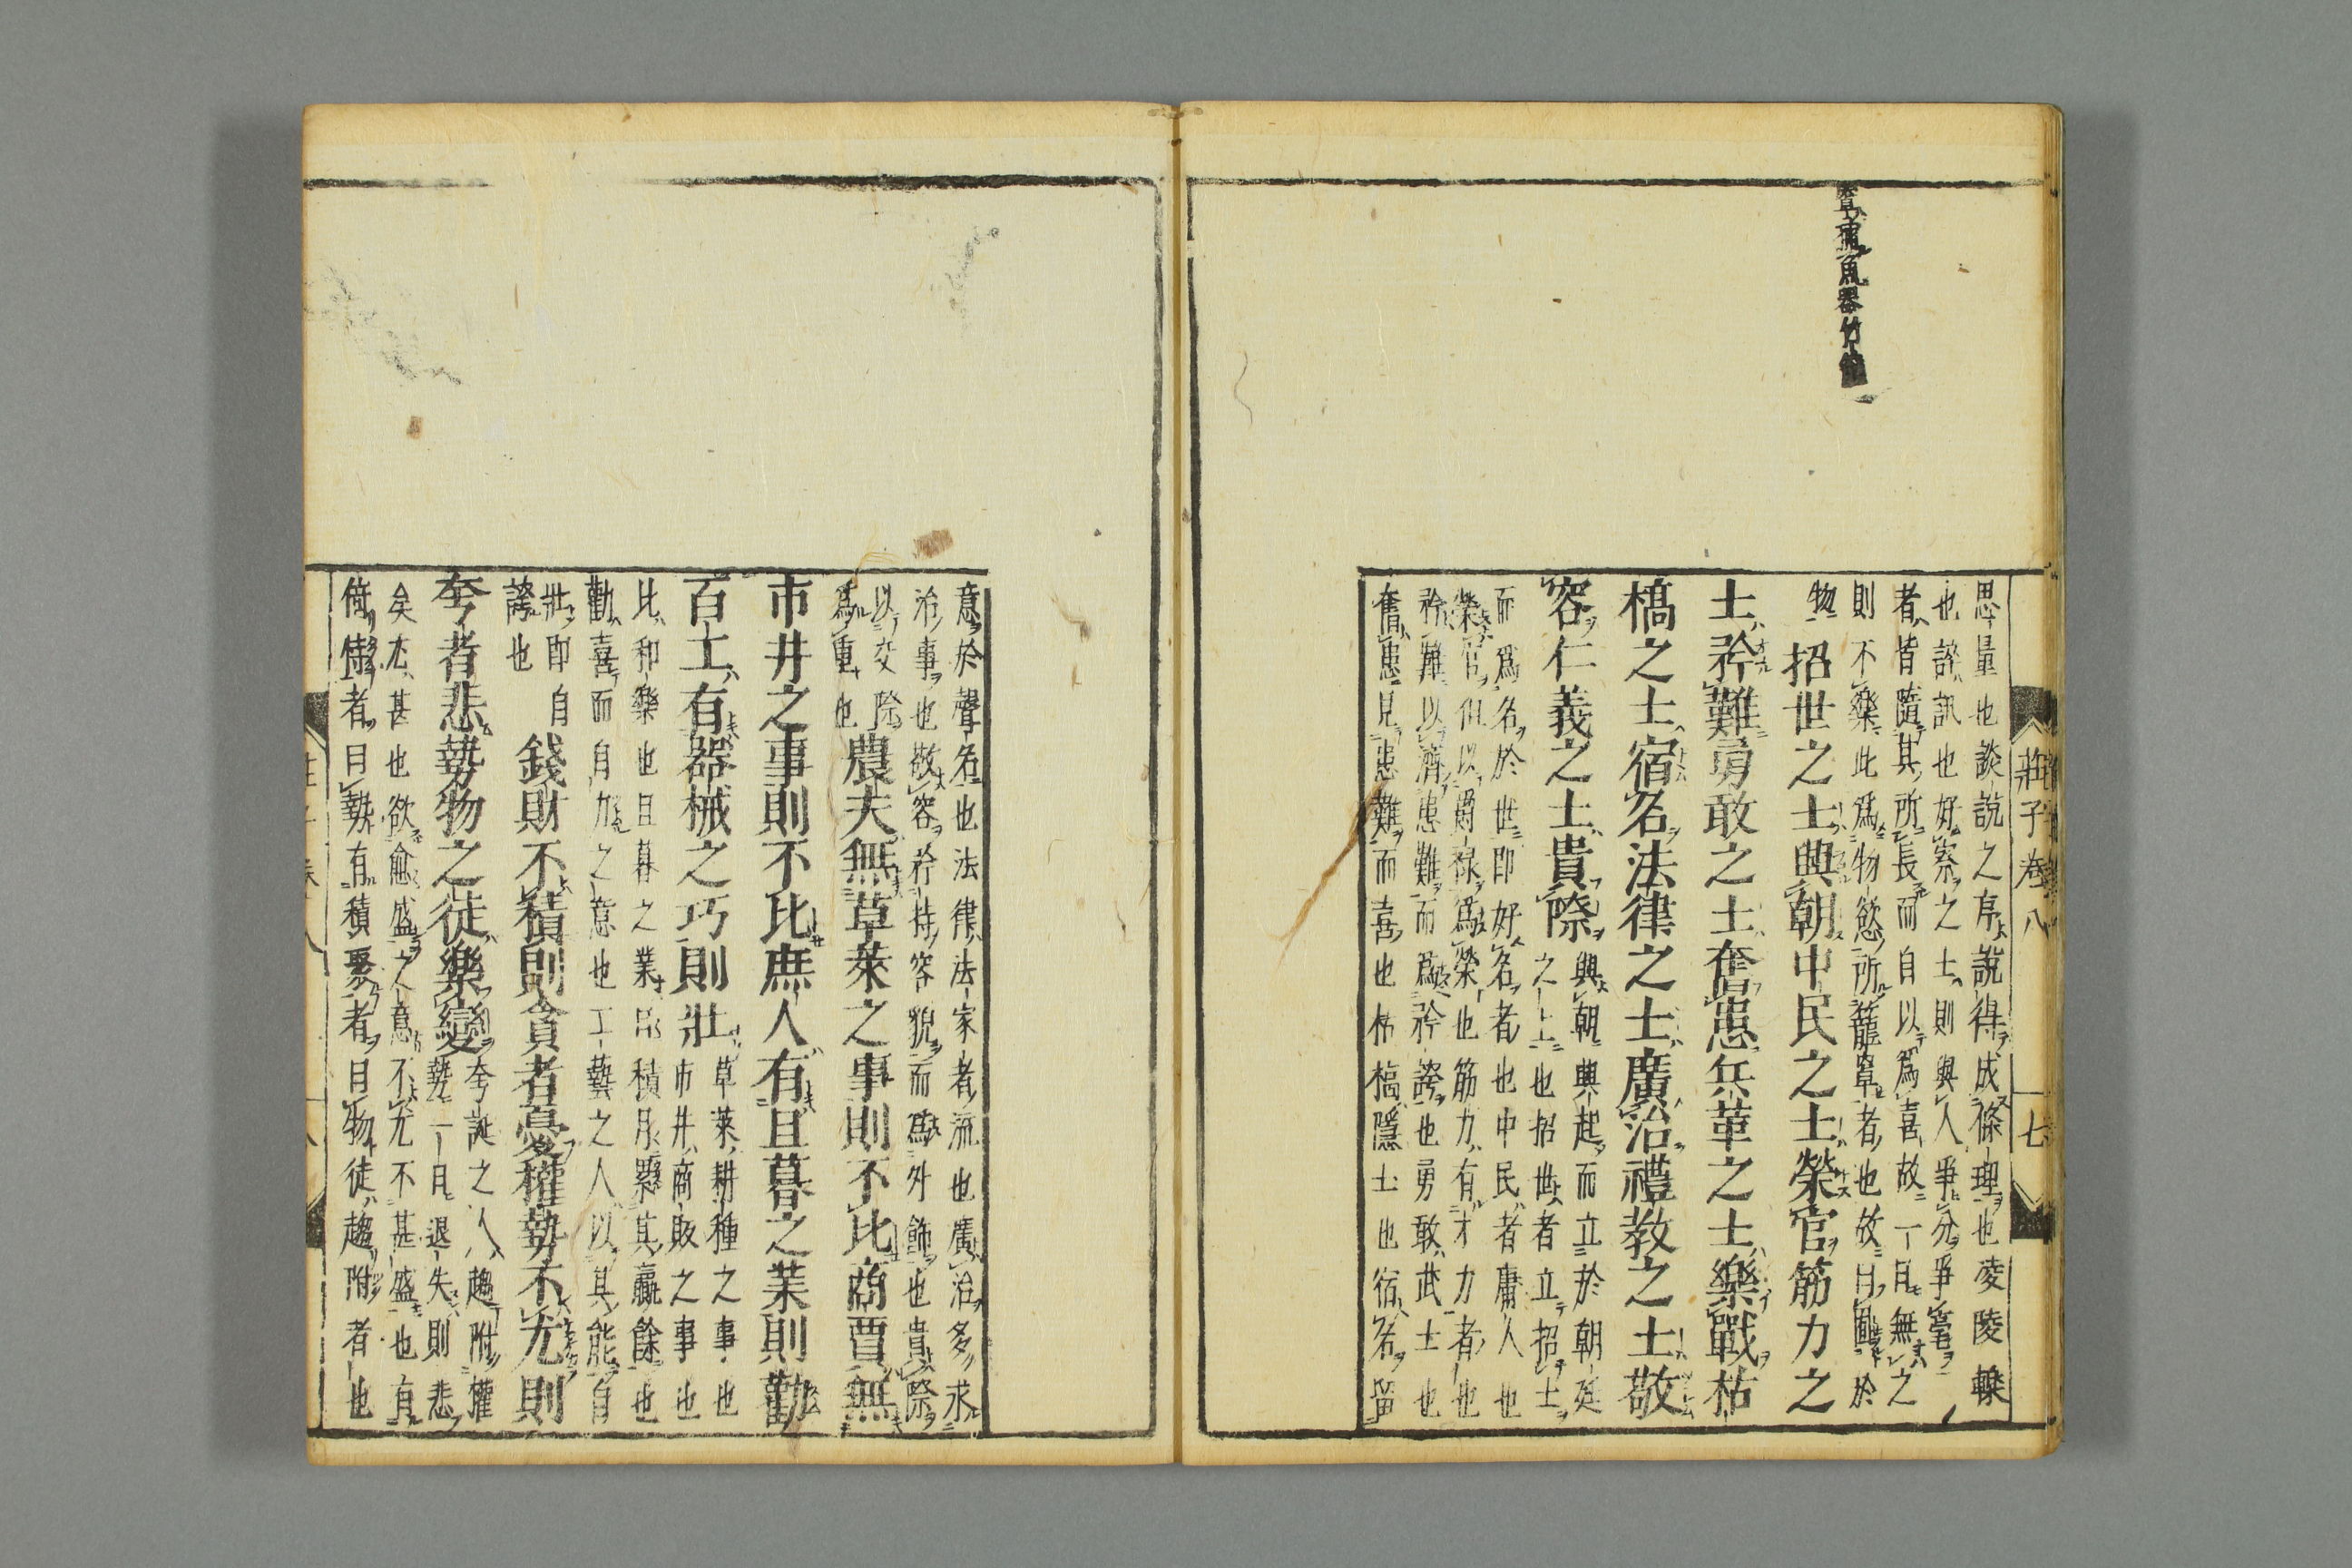 罩捕魚器竹
莊子卷八
七
思量也談說之序說得成條理也凌陵轢
也誶訊也好察之士則與人爭分爭毫
者皆隨其所長而自以爲喜故一日無之
則不樂此爲物慾所籠罩者也故曰囿於
物
招世之士興朝中民之士榮官筋力之
士矜難勇敢之士奮患兵革之士樂戰枯
槁之士宿名法律之士廣治禮教之士敬
容仁義之士貴際
興朝興起而立於朝廷
之士也招世者立招士
而爲名於世即好名者也中民者庸人也
榮官但以爵祿爲榮也筋力有才力者也
矜難以濟患難而爲矜誇也勇敢武士也
奮患見患難而喜也枯槁隱士也宿名留
意於聲名也法律法家者流也廣治多求
治事也敬容矜持容貌而爲外飾也貴際
以交際
爲重也
農夫無草萊之事則不比商賈無
市井之事則不比庶人有旦暮之業則勸
百工有器械之巧則壯
草萊耕種之事也
市井商販之事也
比和樂也旦暮之業日積月累其贏餘也
勸喜而自力之意也工藝之人以其能自
壯即自
誇也
錢財不積則貪者憂權勢不尤則
夸者悲勢物之徒樂變
夸誕之人趨附權
勢一日退失則悲
矣尤甚也欲愈盛之意不尤不甚盛也有
倚恃者曰勢有積聚者曰物徒趨附者也